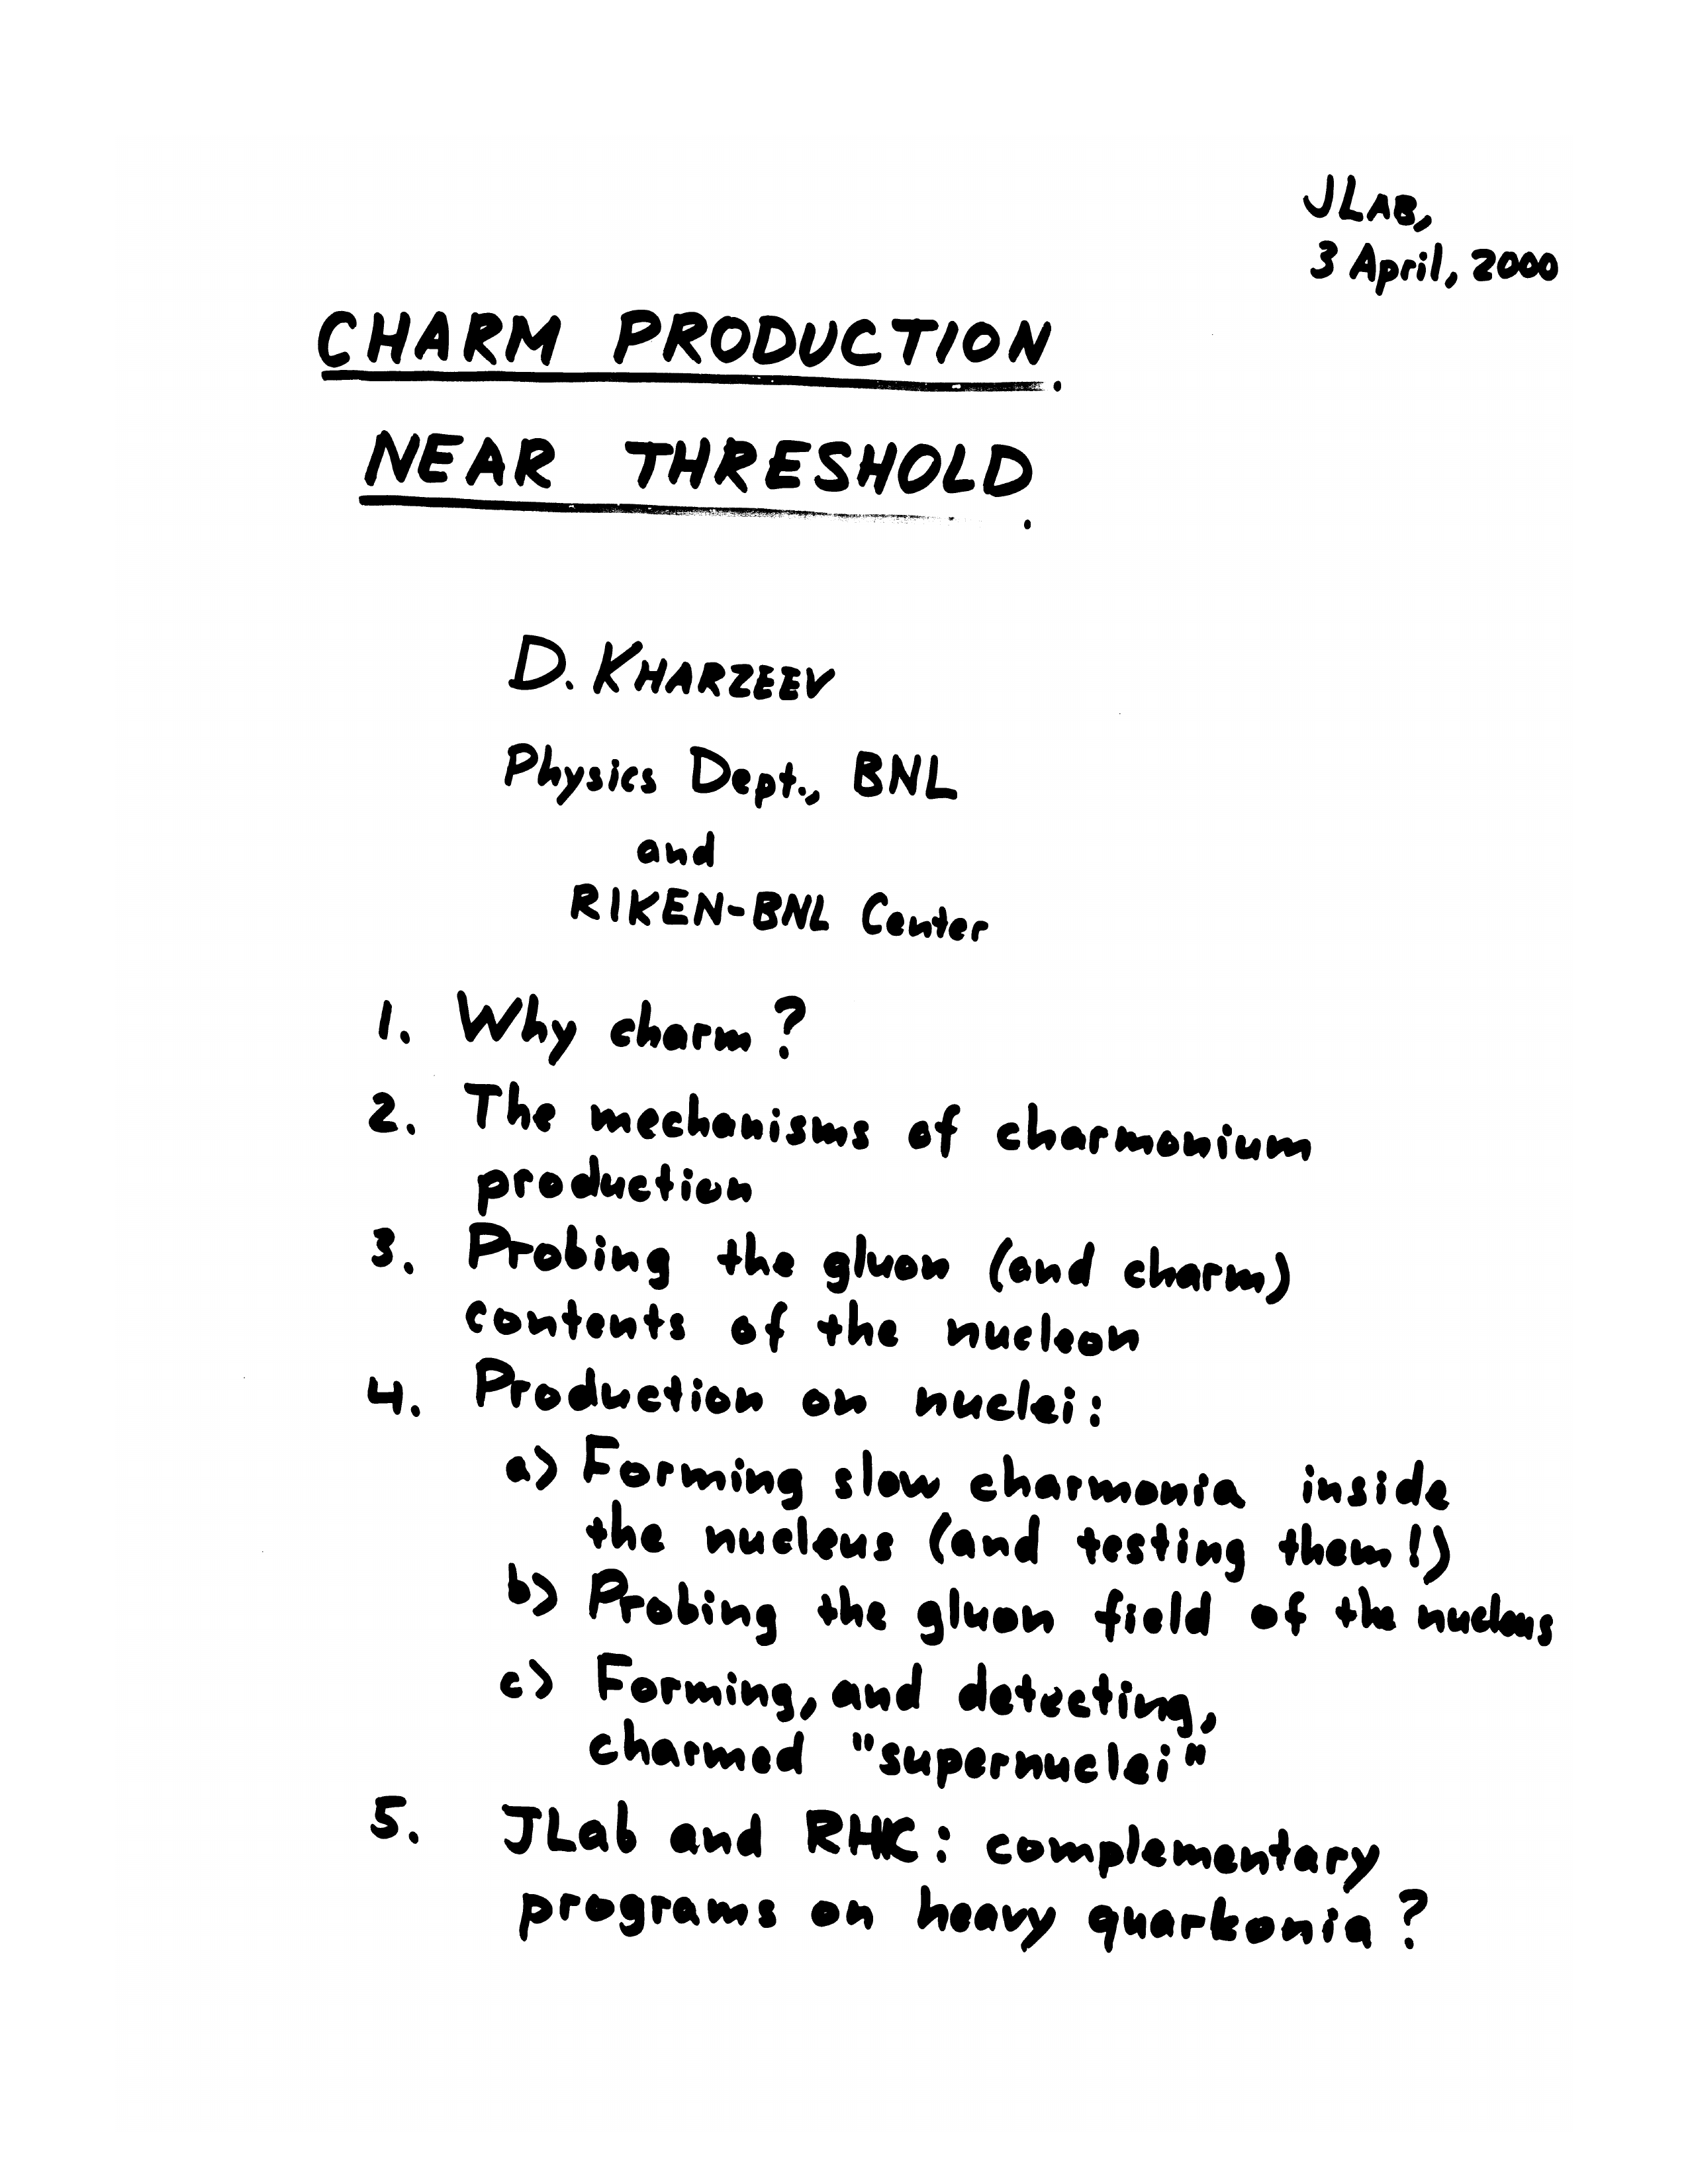 JLAB,
3 April, 2000
CHARM PRODUCTION
NEAR THRESHOLD
D. KHARZEEV
Physics Dept., BNL
and
RIKEN-BNL Center
1. Why charm?
2. The mechanisms of charmonium
production
3. Probing the gluon (and charm)
contents of the nucleon
4. Production on nuclei:
a) Forming slow charmonia inside
the nucleus (and testing them!)
b) Probing the gluon field of the nucleus
c) Forming, and detecting,
charmed "supernuclei"
5. JLab and RHIC: complementary
programs on heavy quarkonia?